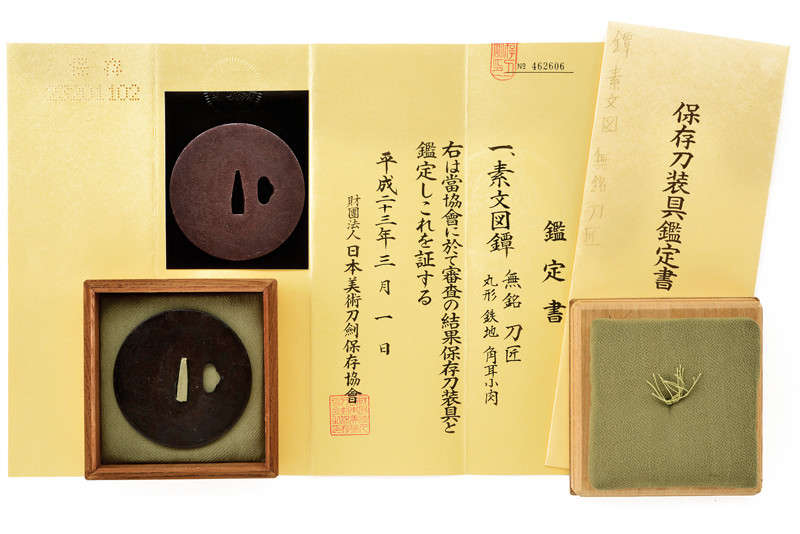 保存
23201102
№ 462606
鑑定書
一、素文図鐔 無銘 刀匠
丸形 鉄地 角耳小肉
右は當協會に於て審査の結果保存刀装具と
鑑定しこれを証する
平成二十三年三月一日
財團法人 日本美術刀劍保存協會
保存刀装具鑑定書
鐔 素文図 無銘 刀匠